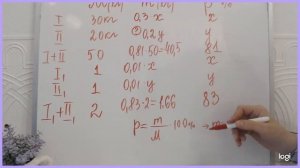 I 30кг 0,3·x x
II 20кг 0,2y y
I+II 50 0,81·50=40,5 81
I₁ 1 0,01·x x
II₁ 1 0,01·y y
I₁+II₁ 2 0,83·2=1.66 83
p=m/M·100% → m